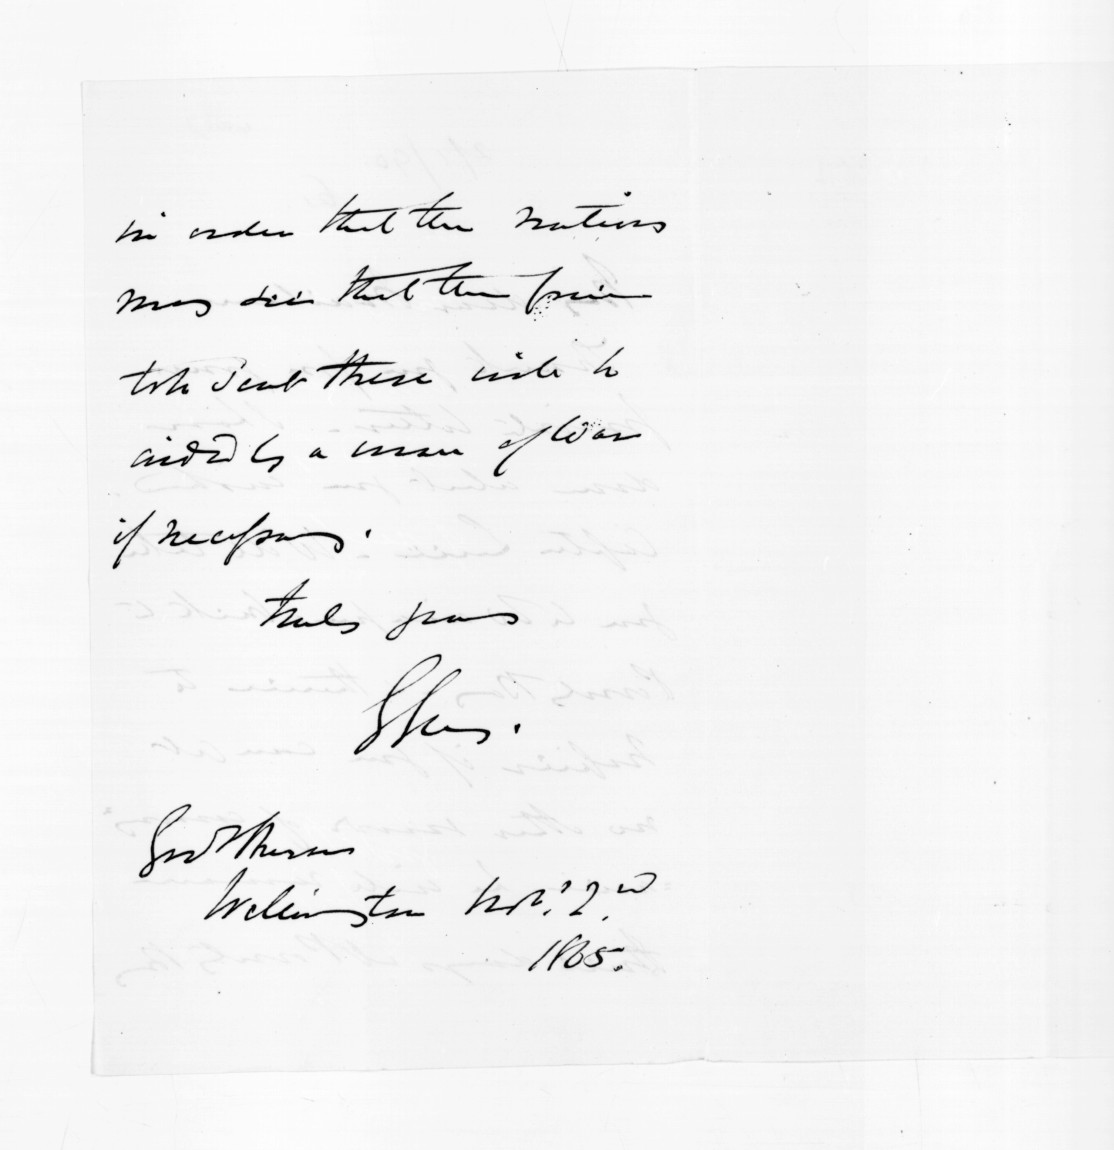 in order that the natives
may see that the force
to be sent there will be
aided by a man of War
if necessary.
truly yours
G Grey.
Govt House
Wellington Novr. 2nd
1865.